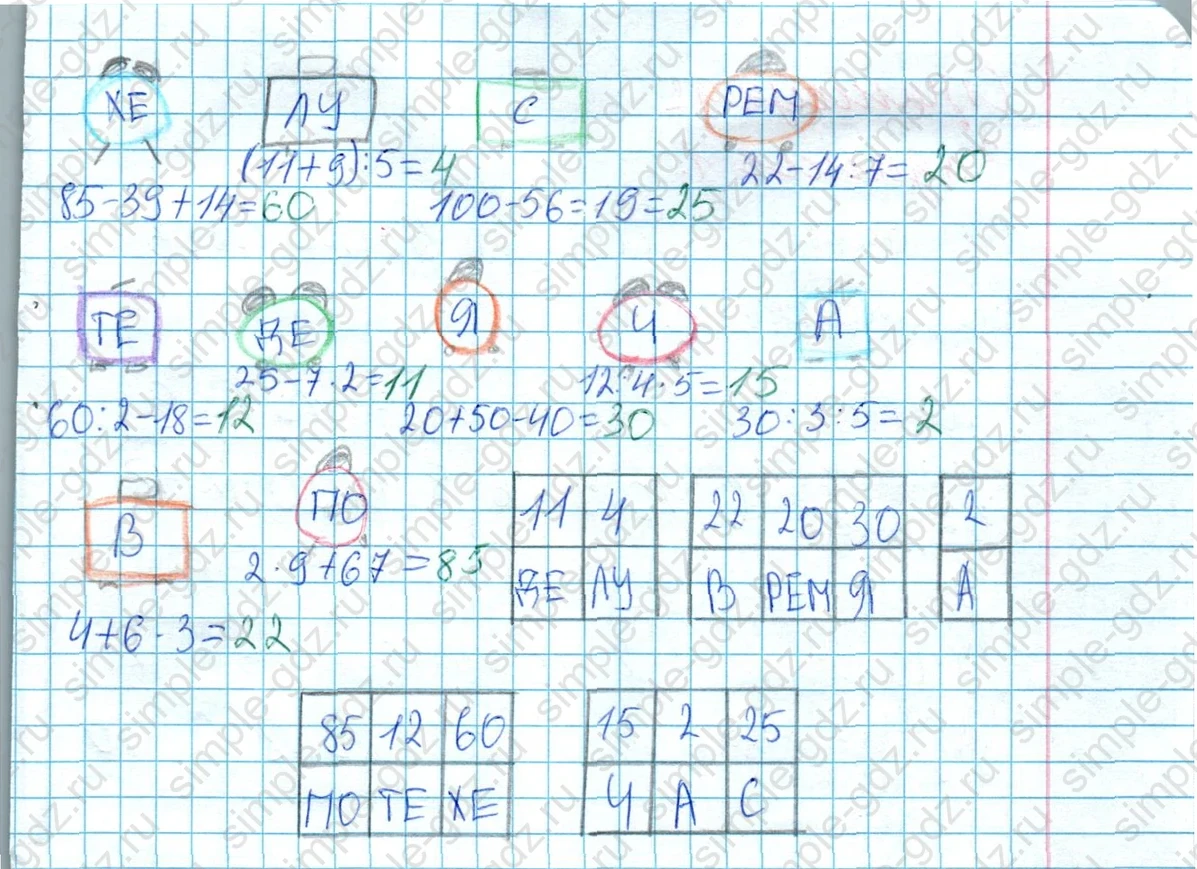 ХЕ ЛУ С РЕМ
(11+9):5=4 22-14:7=20
85-39+14=60 100-56=19=25
ТЕ ДЕ Я Ч А
25-7·2=11 12:4·5=15
60:2-18=12 20+50-40=30 30:3:5=2
В ПО 11 4 22 20 30 2
2·9+67=85 ДЕ ЛУ В РЕМ Я А
4+6·3=22
85 12 60 15 2 25
ПО ТЕ ХЕ Ч А С
simple-gdz.ru